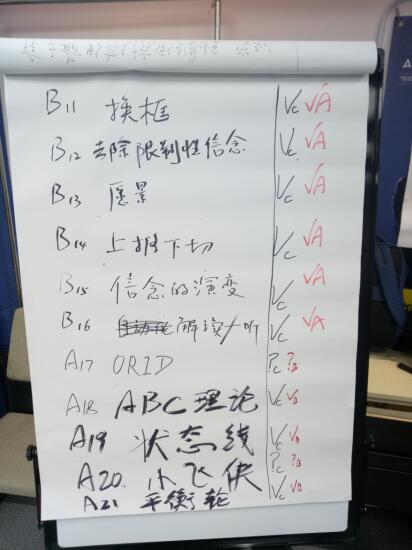 B11 换框 Vc VA
B12 去除限制性信念 Vc VA
B13 愿景 Vc VA
B14 上推下切 Vc VA
B15 信念的演变 Vc VA
B16 解读/听 Vc VA
A17 ORID ?c ?a
A18 ABC理论 Vc Va
A19 状态线 Vc Va
A20. 小飞侠 ?c ?a
A21 平衡轮 Vc Va